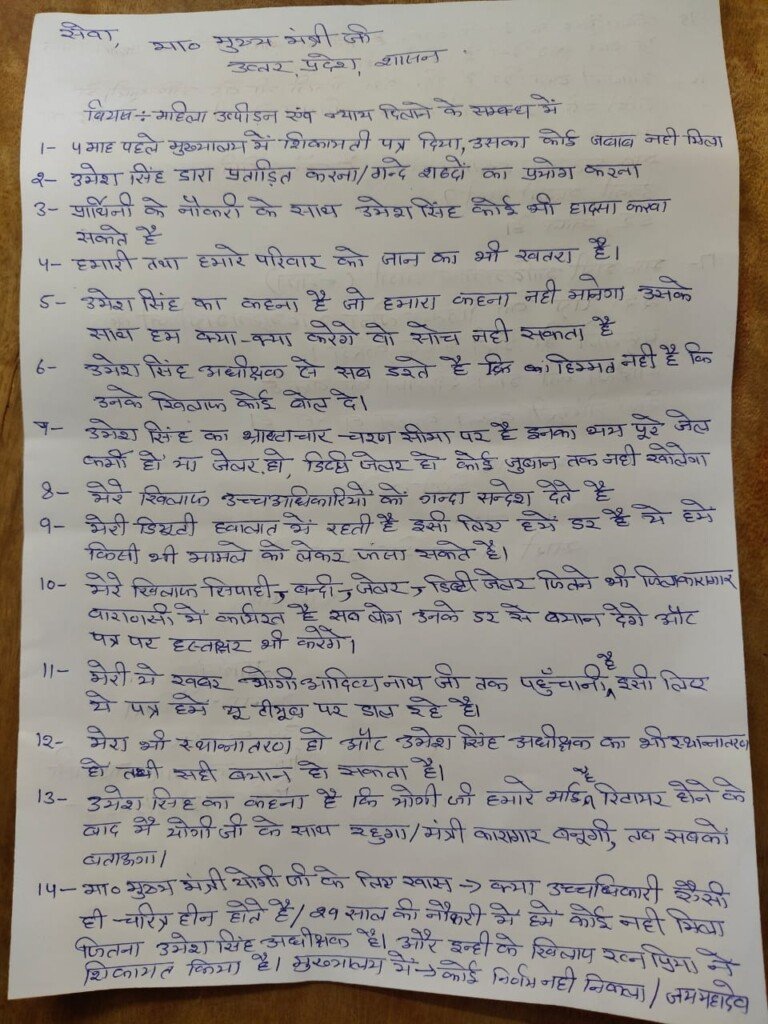 सेवा,
मा० मुख्य मंत्री जी
उत्तर प्रदेश, शासन
विषय:- महिला उत्पीड़न एंव न्याय दिलाने के सम्बन्ध में
1- 4 माह पहले मुख्यालय में शिकायती पत्र दिया, उसका कोई जबाब नही मिला
2- उमेश सिंह द्वारा प्रताड़ित करना/गन्दे शब्दों का प्रयोग करना
3- प्रार्थिनी के नौकरी के साथ उमेश सिंह कोई भी हादसा करवा
सकते है
4- हमारी तथा हमारे परिवार को जान का भी खतरा है।
5- उमेश सिंह का कहना है जो हमारा कहना नही मानेगा उसके
साथ हम क्या-क्या करेगे वो सोच नही सकता है
6- उमेश सिंह अधीक्षक से सब डरते है हिम्मत नही है कि
उनके खिलाफ कोई बोल दे।
7- उमेश सिंह का भ्रष्टाचार चरण सीमा पर है इनका भय पूरे जेल
कर्मी हो या जेलर हो, डिप्टी जेलर हो कोई जुबान तक नही खोलेगा
8- मेरे खिलाफ उच्चअधिकारियों को गन्दा सन्देश देते है
9- मेरी डियुटी हवालात में रहती है इसी लिए हमें डर है ये हमे
किसी भी मामले को लेकर फंसा सकते है।
10- मेरे खिलाफ सिपाही, बन्दी, जेलर, डिप्टी जेलर जितने भी जिलाकारागार
वाराणसी में कार्यरत है सब लोग उनके डर से बयान देगे और
पत्र पर हस्ताक्षर भी करेंगे।
11- मेरी ये खबर योगी आदित्य नाथ जी तक पहुँचानी है इसी लिए
ये पत्र हमे यू टीयूब पर डाल रहे है।
12- मेरा भी स्थानातरण हो और उमेश सिंह अधीक्षक का भी स्थानातरण
हो तभी सही बयान हो सकता है।
13- उमेश सिंह का कहना है कि योगी जी हमारे भाई है रिटायर होने के
बाद मैं योगी जी के साथ रहुगा/मंत्री कारागार बनूगी, तब सबको
बताऊगा।
14- मा० मुख्य मंत्री योगी जी के लिए खास → क्या उच्चधिकारी ऐसी
ही चरित्र हीन होते है/ 29 साल की नौकरी में हमें कोई नही मिला
जितना उमेश सिंह अधीक्षक है। और इन्ही के खिलाप रत्न प्रिया ने
शिकायत किया है। मुख्यालय में → कोई निर्णय नही निकला / जय महादेव